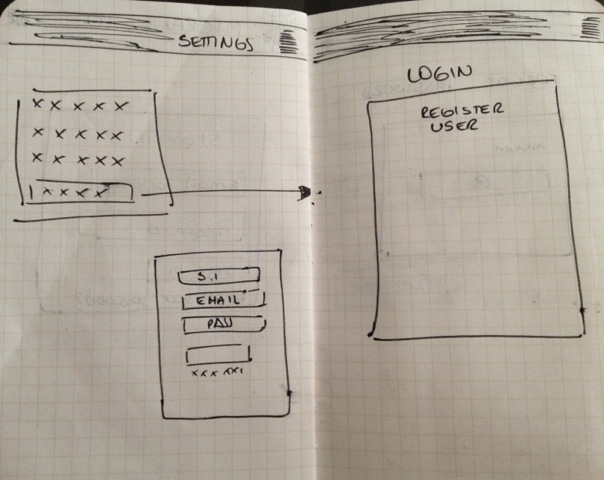 SETTINGS
x x x x x
x x x x x
x x x x x
x x x x x
S.I
EMAIL
x x x x x x
LOGIN
REGISTER
USER